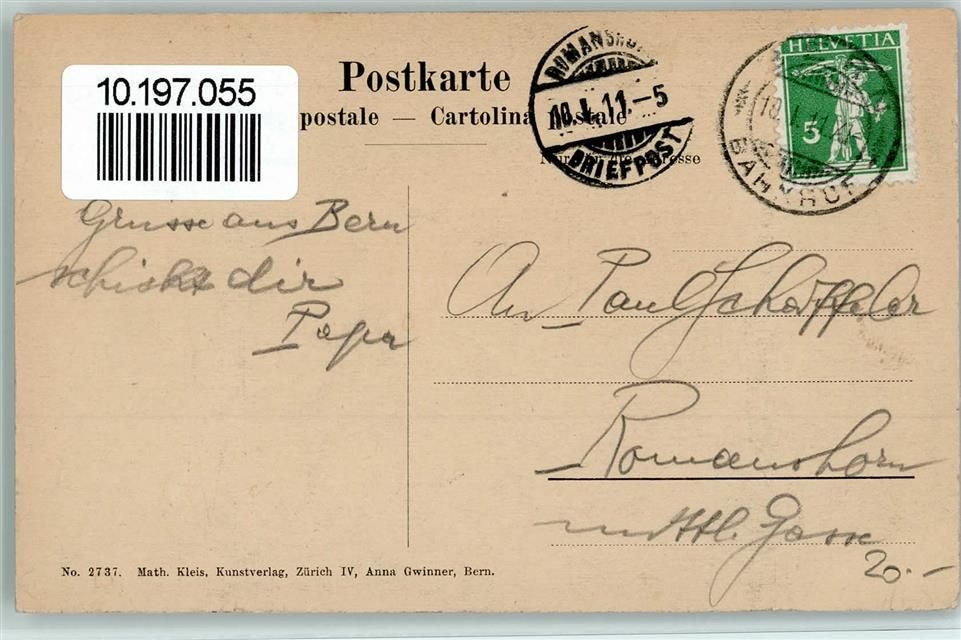 10.197.055
Postkarte
postale — Cartolina postale
Nur für die Adresse
ROMANSHORN
10.4.11.-5
BRIEFPOST
HELVETIA
5
BAHNHOF
Grüsse aus Bern
schickt dir
Papa
An Paul Schäffeler
Romanshorn
mittl. Gasse
20.-
No. 2737. Math. Kleis, Kunstverlag, Zürich IV, Anna Gwinner, Bern.